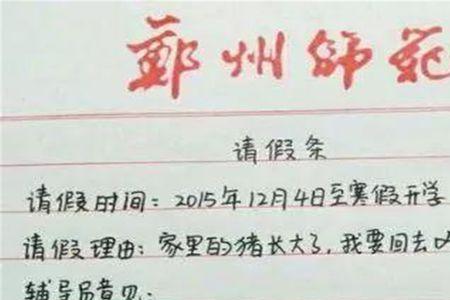 鄭州师范
请假条
请假时间：2015年12月4日至寒假开学
请假理由：家里的猪长大了，我要回去
辅导员意见：